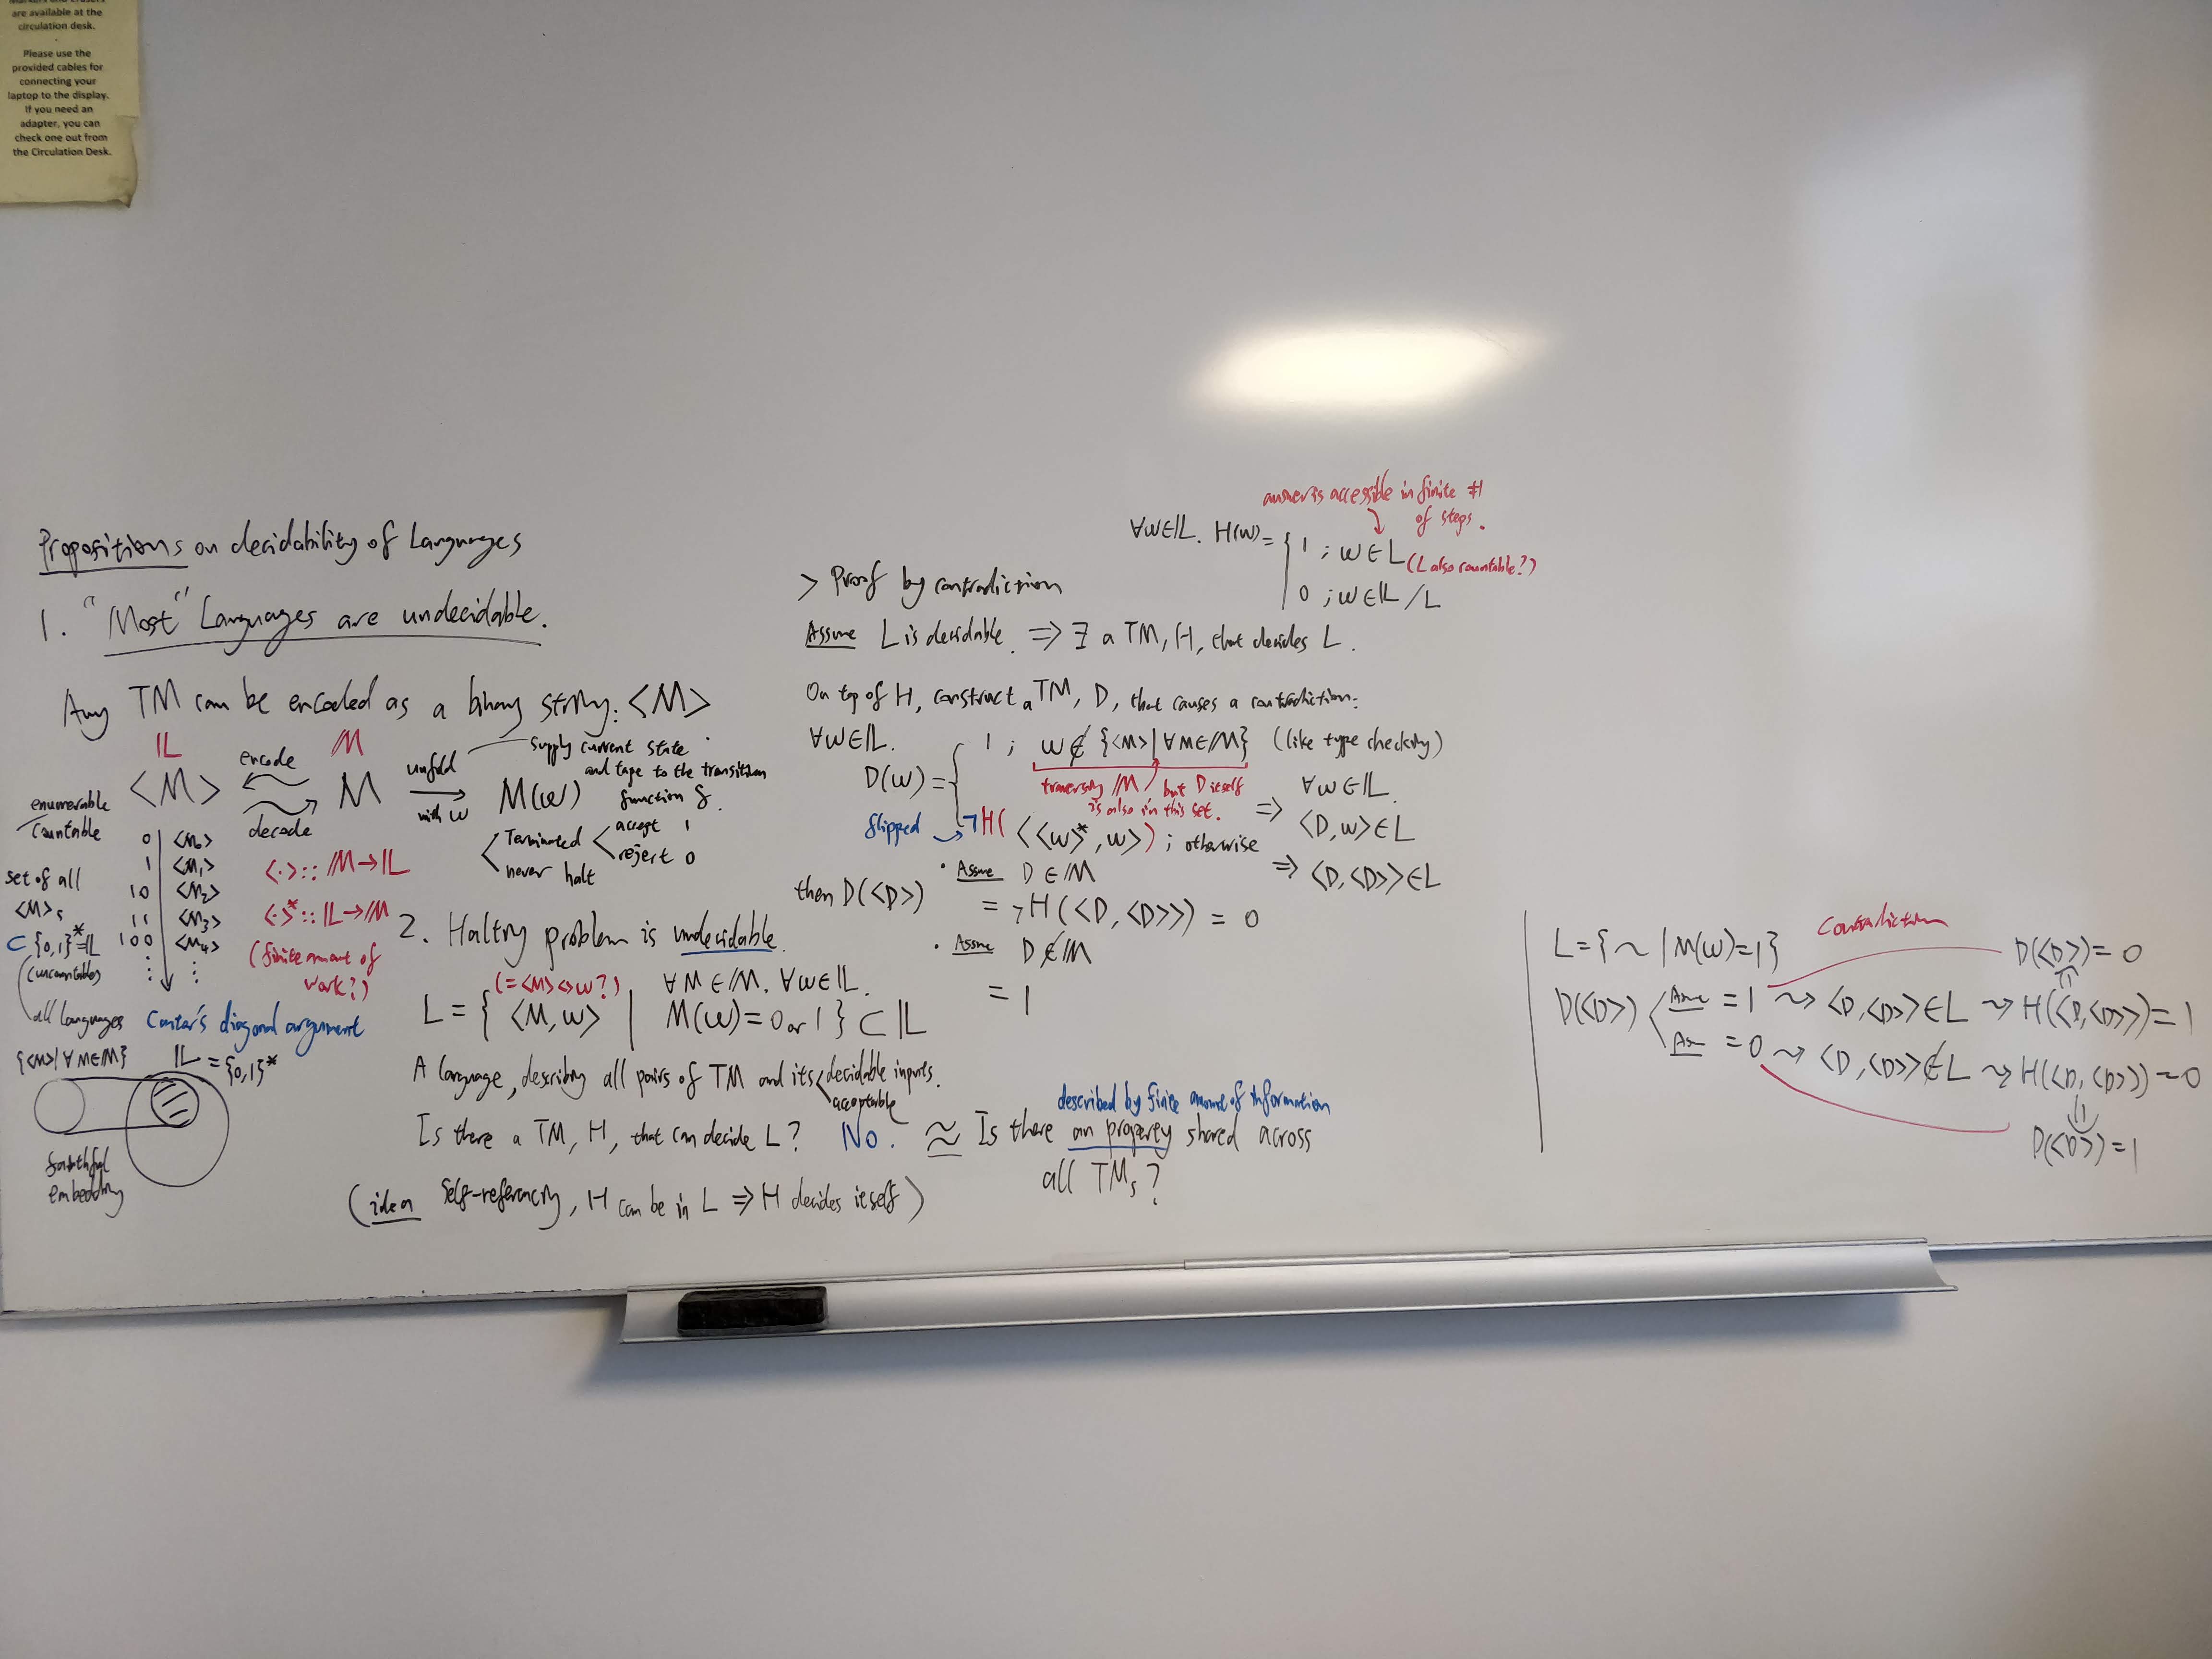 are available at the
circulation desk.
Please use the
provided cables for
connecting your
laptop to the display.
If you need an
adapter, you can
check one out from
the Circulation Desk.
Propositions on decidability of Languages
1. "Most" Languages are undecidable.
Any TM can be encoded as a binary string: <M>
𝕃 encode 𝕄
<M> ⇄ M
decode
unfold
with w
M(w)
supply current state
and tape to the transition
function δ.
Terminated
accept 1
reject 0
never halt
enumerable
countable
set of all
<M>s
⊂ {0,1}*=𝕃
(uncountable)
all languages
0 <M₀>
1 <M₁>
10 <M₂>
11 <M₃>
100 <M₄>
⋮ ⋮
<·> :: 𝕄→𝕃
<·>* :: 𝕃→𝕄
(finite amount of
work?)
Cantar's diagonal argument
{<M>|∀M∈𝕄} 𝕃={0,1}*
faithful
embedding
2. Halting problem is undecidable.
(=<M><>w?) ∀M∈𝕄. ∀w∈𝕃.
L = { <M,w> | M(w)=0 or 1 } ⊂ 𝕃
A language, describing all pairs of TM and its decidable inputs.
acceptable
Is there a TM, H, that can decide L? No. ≈ Is there an property shared across
described by finite amount of information
all TMs?
(idea Self-referencing, H can be in L ⇒ H decides itself)
answer is accessible in finite #
of steps.
∀w∈𝕃. H(w)= { 1 ; w∈L (L also countable?)
0 ; w∈𝕃/L
> Proof by contradiction
Assume L is decidable. ⇒ ∃ a TM, H, that decides L.
On top of H, construct a TM, D, that causes a contradiction:
∀w∈𝕃.
D(w) = { 1 ; w∉{<M>|∀M∈𝕄} (like type checking)
traversing 𝕄 but D itself
is also in this set.
flipped ¬H( <<w>*,w> ) ; otherwise
⇒ ∀w∈𝕃.
<D,w>∈L
⇒ <D,<D>>∈L
· Assume D∈𝕄
then D(<D>) = ¬H(<D,<D>>) = 0
· Assume D∉𝕄
= 1
L={~|M(w)=1}
Contradiction
D(<D>)=0
D(<D>) Assume =1 ⇝ <D,<D>>∈L ⇝ H(<D,<D>>)=1
Assm =0 ⇝ <D,<D>>∉L ⇝ H(<D,<D>>)=0
D(<D>)=1